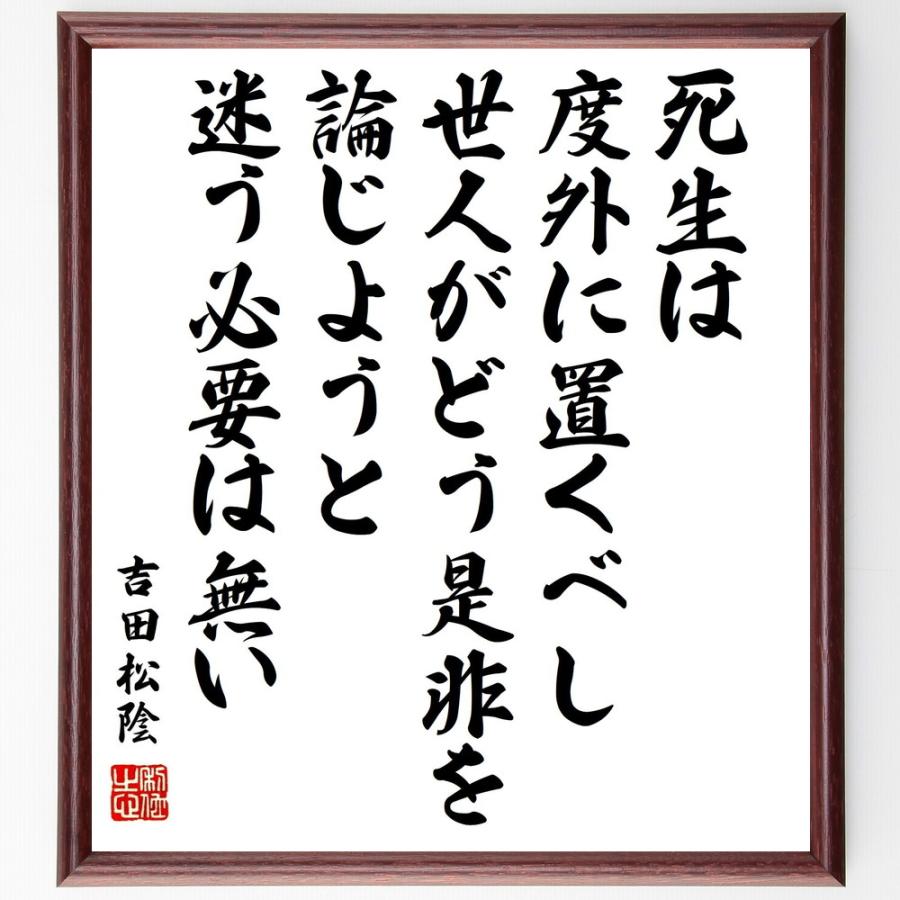 死生は
度外に置くべし
世人がどう是非を
論じようと
迷う必要は無い
吉田松陰